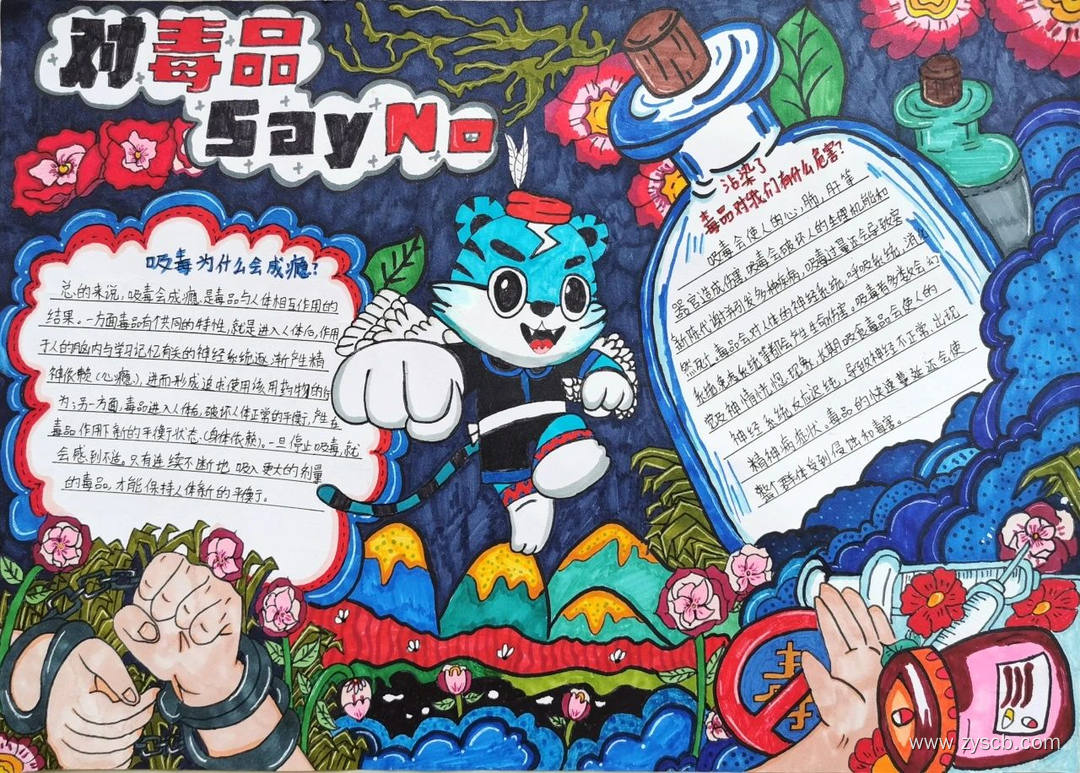 对毒品
Say No
吸毒为什么会成瘾?
总的来说,吸毒会成瘾,是毒品与人体相互作用的
结果。一方面毒品有个共同的特性,就是进入人体后,作用
于人的脑内与学习记忆有关的神经系统逐渐产生精
神依赖(心瘾),进而形成追求使用该用药物的行
为;另一方面,毒品进入人体后,破坏人体正常的平衡,产生在
毒品作用下新的平衡状态(身体依赖)。一旦停止吸毒,就
会感到不适。只有连续不断地吸入更大的剂量
的毒品,才能保持人体新的平衡。
沾染了
毒品对我们有什么危害?
吸毒会使人的心,肺,肝等
器官造成伤害,吸毒会破坏人的生理机能和
新陈代谢并引发多种疾病,吸毒过量还会导致
然死亡,毒品会对人体的神经系统,呼吸系统,消化
系统,免疫系统等都会产生生命伤害。吸毒者多数会幻
觉及神情恍惚现象,长期吸食毒品会使人的
神经系统反应迟钝,导致神经不正常,出现
精神病症状。毒品的快速蔓延还会使
整个群体受到侵蚀和毒害。
www.zyscb.com